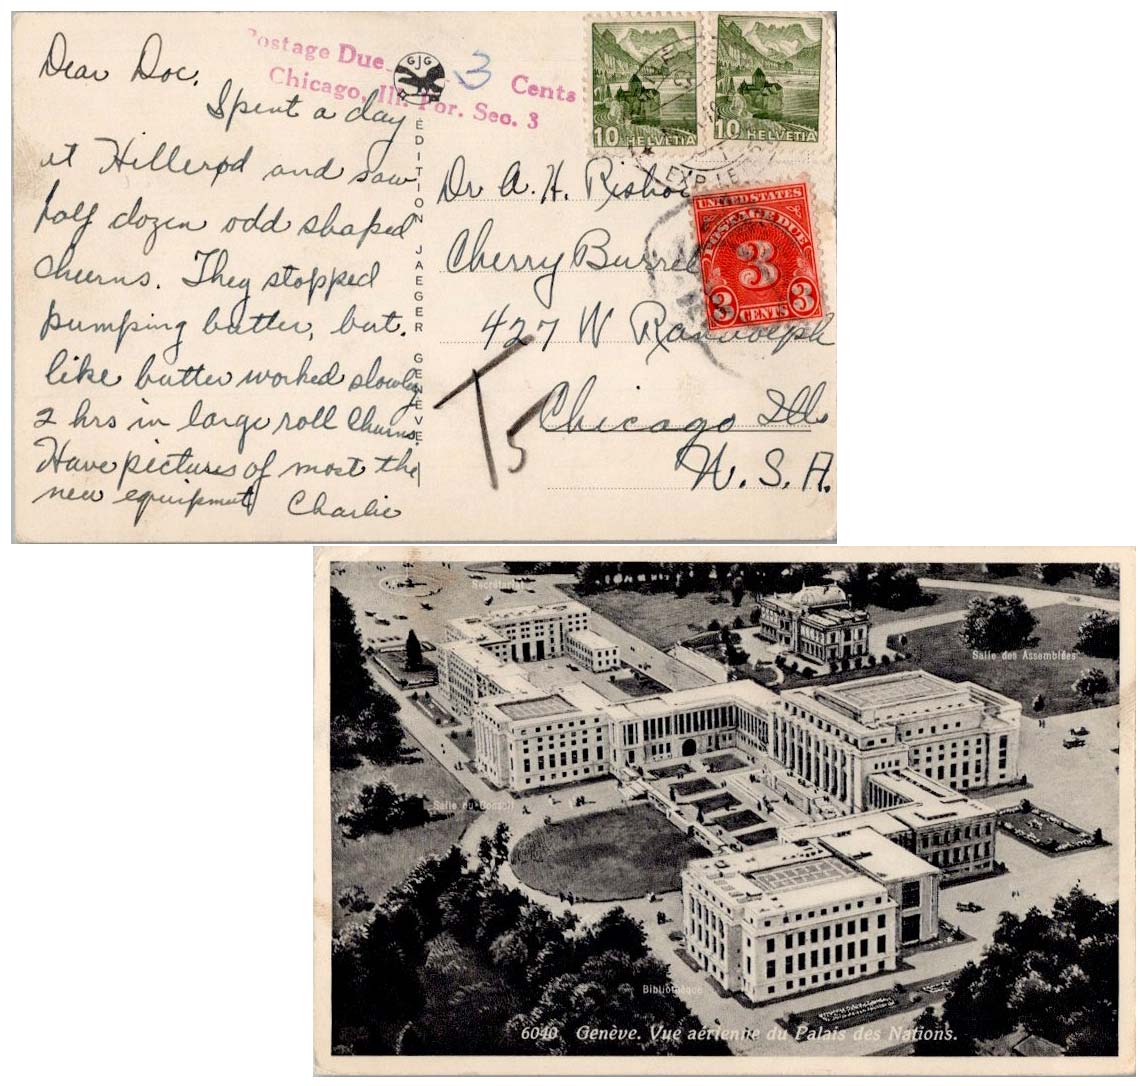 Dear Doc,
Spent a day
at Hillerod and saw
half dozen odd shaped
churns. They stopped
pumping butter, but.
like butter worked slowly
2 hrs in large roll Churns.
Have pictures of most the
new equipment Charlie
Postage Due 3 Cents
Chicago, Ill. For. Sec. 3
GJG
EDITION JAEGER GENÈVE
10 HELVETIA
10 HELVETIA
EXP. LE
UNITED STATES
POSTAGE DUE
3
3 CENTS 3
Dr A. H. Risho
Cherry Burrel
427 W Randolph
Chicago Ill
U. S. A.
T5
Secrétariat
Salle des Assemblées
Salle du Conseil
Bibliothèque
6040 Genève. Vue aérienne du Palais des Nations.